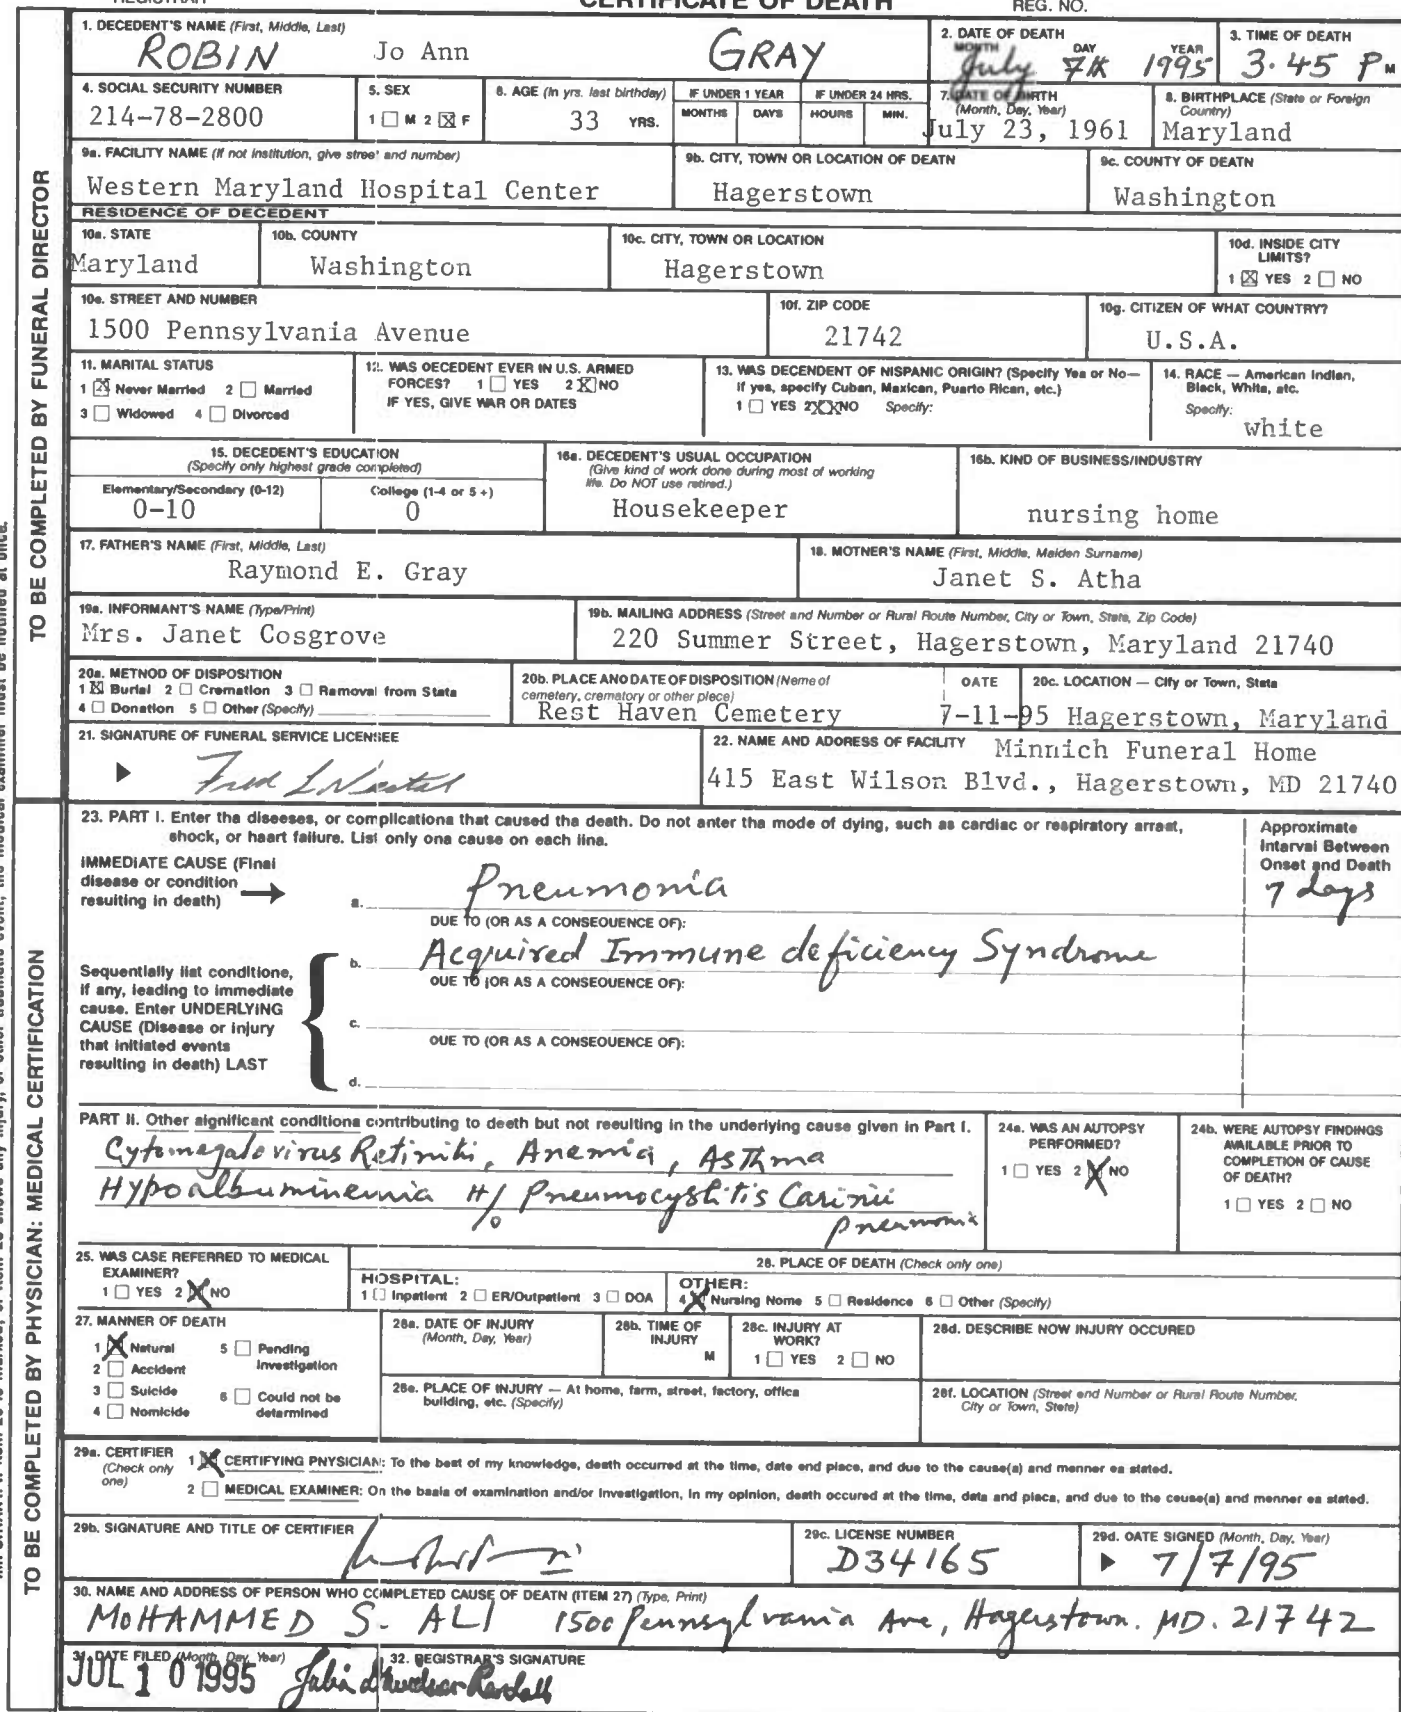 CERTIFICATE OF DEATH
REG. NO.
TO BE COMPLETED BY FUNERAL DIRECTOR
1. DECEDENT'S NAME (First, Middle, Last)
ROBIN Jo Ann GRAY
2. DATE OF DEATH
MONTH DAY YEAR
July 7th 1995
3. TIME OF DEATH
3.45 P M
4. SOCIAL SECURITY NUMBER
214-78-2800
5. SEX
1 ☐ M 2 ☒ F
6. AGE (In yrs. last birthday)
33 YRS.
IF UNDER 1 YEAR
MONTHS DAYS
IF UNDER 24 HRS.
HOURS MIN.
7. DATE OF BIRTH
(Month, Day, Year)
July 23, 1961
8. BIRTHPLACE (State or Foreign
Country)
Maryland
9a. FACILITY NAME (If not institution, give street and number)
Western Maryland Hospital Center
9b. CITY, TOWN OR LOCATION OF DEATH
Hagerstown
9c. COUNTY OF DEATH
Washington
RESIDENCE OF DECEDENT
10a. STATE
Maryland
10b. COUNTY
Washington
10c. CITY, TOWN OR LOCATION
Hagerstown
10d. INSIDE CITY
LIMITS?
1 ☒ YES 2 ☐ NO
10e. STREET AND NUMBER
1500 Pennsylvania Avenue
10f. ZIP CODE
21742
10g. CITIZEN OF WHAT COUNTRY?
U.S.A.
11. MARITAL STATUS
1 ☒ Never Married 2 ☐ Married
3 ☐ Widowed 4 ☐ Divorced
12. WAS DECEDENT EVER IN U.S. ARMED
FORCES? 1 ☐ YES 2 ☒ NO
IF YES, GIVE WAR OR DATES
13. WAS DECENDENT OF HISPANIC ORIGIN? (Specify Yes or No—
If yes, specify Cuban, Mexican, Puerto Rican, etc.)
1 ☐ YES 2 ☒ NO Specify:
14. RACE — American Indian,
Black, White, etc.
Specify:
white
15. DECEDENT'S EDUCATION
(Specify only highest grade completed)
Elementary/Secondary (0-12)
0-10
College (1-4 or 5+)
0
16a. DECEDENT'S USUAL OCCUPATION
(Give kind of work done during most of working
life. Do NOT use retired.)
Housekeeper
16b. KIND OF BUSINESS/INDUSTRY
nursing home
17. FATHER'S NAME (First, Middle, Last)
Raymond E. Gray
18. MOTHER'S NAME (First, Middle, Maiden Surname)
Janet S. Atha
19a. INFORMANT'S NAME (Type/Print)
Mrs. Janet Cosgrove
19b. MAILING ADDRESS (Street and Number or Rural Route Number, City or Town, State, Zip Code)
220 Summer Street, Hagerstown, Maryland 21740
20a. METHOD OF DISPOSITION
1 ☒ Burial 2 ☐ Cremation 3 ☐ Removal from State
4 ☐ Donation 5 ☐ Other (Specify)
20b. PLACE AND DATE OF DISPOSITION (Name of
cemetery, crematory or other place)
Rest Haven Cemetery
DATE
7-11-95
20c. LOCATION — City or Town, State
Hagerstown, Maryland
21. SIGNATURE OF FUNERAL SERVICE LICENSEE
Fred L
22. NAME AND ADDRESS OF FACILITY Minnich Funeral Home
415 East Wilson Blvd., Hagerstown, MD 21740
TO BE COMPLETED BY PHYSICIAN: MEDICAL CERTIFICATION
23. PART I. Enter the diseases, or complications that caused the death. Do not enter the mode of dying, such as cardiac or respiratory arrest,
shock, or heart failure. List only one cause on each line.
Approximate
Interval Between
Onset and Death
IMMEDIATE CAUSE (Final
disease or condition
resulting in death)
a. Pneumonia 7 days
DUE TO (OR AS A CONSEQUENCE OF):
b. Acquired Immune deficiency Syndrome
DUE TO (OR AS A CONSEQUENCE OF):
c.
DUE TO (OR AS A CONSEQUENCE OF):
d.
Sequentially list conditions,
if any, leading to immediate
cause. Enter UNDERLYING
CAUSE (Disease or injury
that initiated events
resulting in death) LAST
PART II. Other significant conditions contributing to death but not resulting in the underlying cause given in Part I.
Cytomegalovirus Retinitis, Anemia, Asthma
Hypoalbuminemia H/o Pneumocystitis Carinii
pneumonia
24a. WAS AN AUTOPSY
PERFORMED?
1 ☐ YES 2 ☒ NO
24b. WERE AUTOPSY FINDINGS
AVAILABLE PRIOR TO
COMPLETION OF CAUSE
OF DEATH?
1 ☐ YES 2 ☐ NO
25. WAS CASE REFERRED TO MEDICAL
EXAMINER?
1 ☐ YES 2 ☒ NO
26. PLACE OF DEATH (Check only one)
HOSPITAL:
1 ☐ Inpatient 2 ☐ ER/Outpatient 3 ☐ DOA
OTHER:
4 ☒ Nursing Home 5 ☐ Residence 6 ☐ Other (Specify)
27. MANNER OF DEATH
1 ☒ Natural 5 ☐ Pending
Investigation
2 ☐ Accident
3 ☐ Suicide 6 ☐ Could not be
determined
4 ☐ Homicide
28a. DATE OF INJURY
(Month, Day, Year)
28b. TIME OF
INJURY
M
28c. INJURY AT
WORK?
1 ☐ YES 2 ☐ NO
28d. DESCRIBE HOW INJURY OCCURED
28e. PLACE OF INJURY — At home, farm, street, factory, office
building, etc. (Specify)
28f. LOCATION (Street and Number or Rural Route Number,
City or Town, State)
29a. CERTIFIER
(Check only
one)
1 ☒ CERTIFYING PHYSICIAN: To the best of my knowledge, death occurred at the time, date and place, and due to the cause(s) and manner as stated.
2 ☐ MEDICAL EXAMINER: On the basis of examination and/or investigation, in my opinion, death occured at the time, date and place, and due to the cause(s) and manner as stated.
29b. SIGNATURE AND TITLE OF CERTIFIER
29c. LICENSE NUMBER
D34165
29d. DATE SIGNED (Month, Day, Year)
7/7/95
30. NAME AND ADDRESS OF PERSON WHO COMPLETED CAUSE OF DEATH (ITEM 27) (Type, Print)
MOHAMMED S. ALI 1500 Pennsylvania Ave, Hagerstown. MD. 21742
31. DATE FILED (Month, Day, Year)
JUL 10 1995
32. REGISTRAR'S SIGNATURE